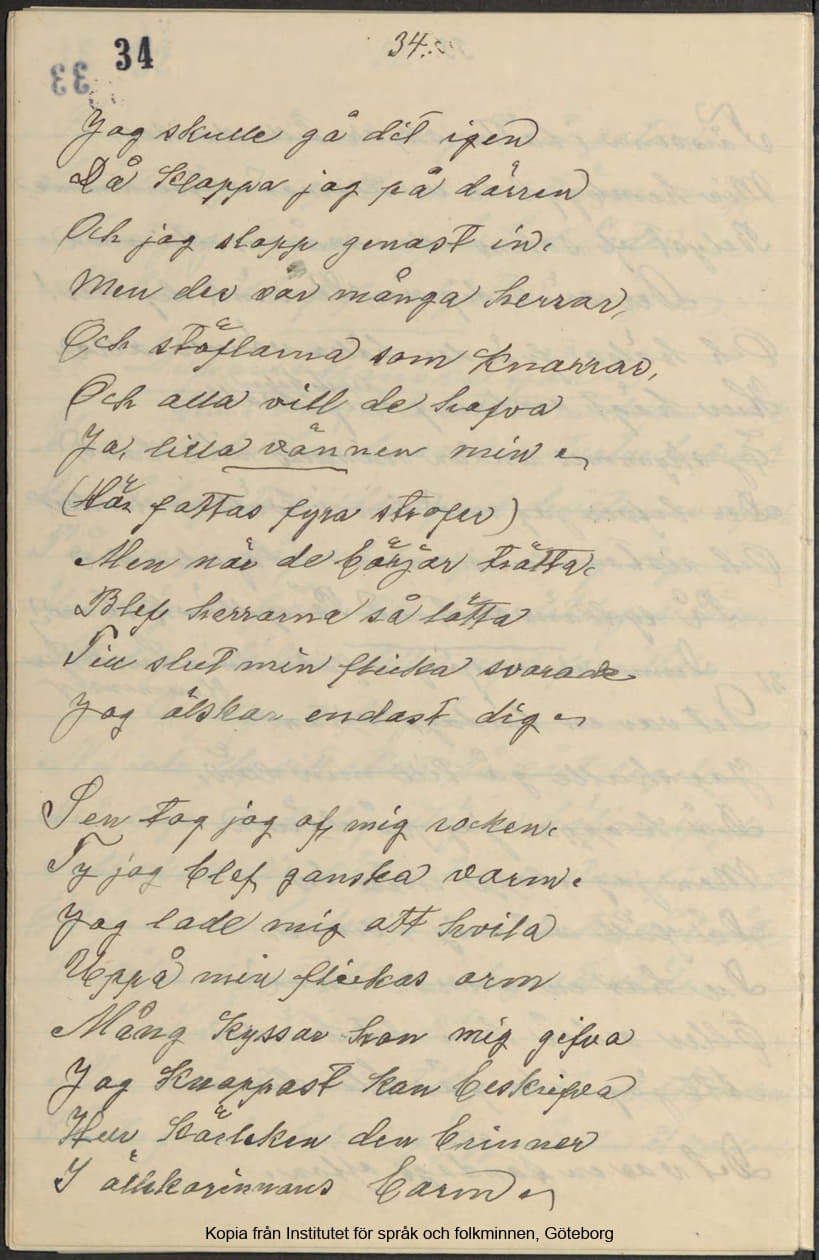 34
33
34.
Jag skulle gå dit igen
Då klappa jag på dörren
Och jag slapp genast in.
Men der var många herrar,
Och stöflarna som knarrar,
Och alla vill de hafva
Ja, lilla vännen min
(Här fattas fyra strofer)
Men när de börjar trötta.
Blef herrarna så lätta
Till slut min flicka svarade
Jag älskar endast dig
Sen tog jag af mig rocken.
Ty jag blef ganska varm.
Jag lade mig att hvila
Uppå min flickas arm
Mång kyssar hon mig gifva
Jag knappast kan beskrifva
Hur kärleken den brinner
I älskarinnans barm
Kopia från Institutet för språk och folkminnen, Göteborg